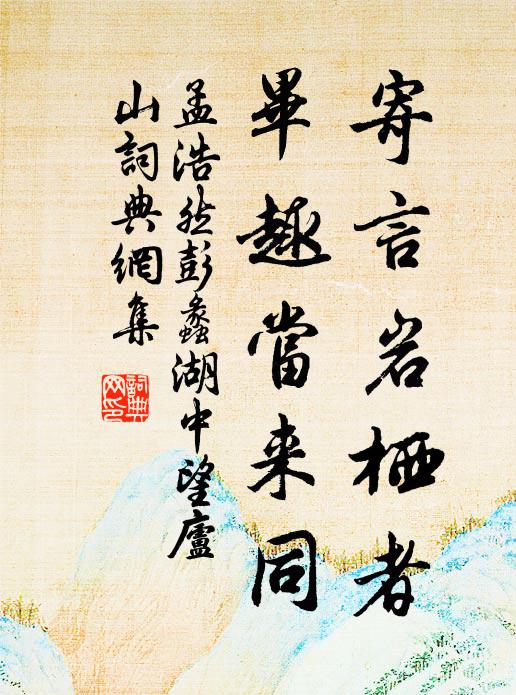 寄言岩栖者
畢趣當来同
孟浩然彭蠡湖中望廬
山詞典網集
詞典
网印